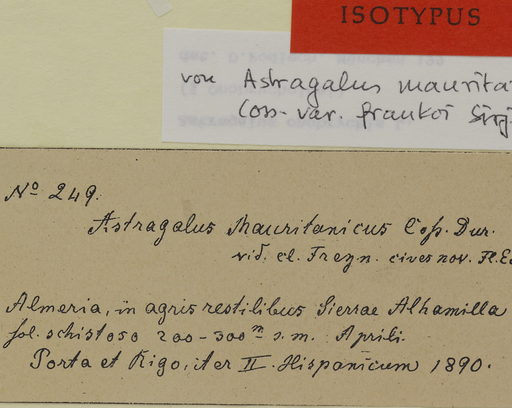 ISOTYPUS
von Astragalus mauritan
Coss. var. frankoi Sirj
Nº 249.
Astragalus Mauritanicus Coſs. Dur.
vid. cl. Freyn.
Almeria, in agris restilibus Sierrae Alhamilla
sol. schistoso 200-300 m s. m. Aprili.
Porta et Rigo, iter II. Hispanicum 1890.